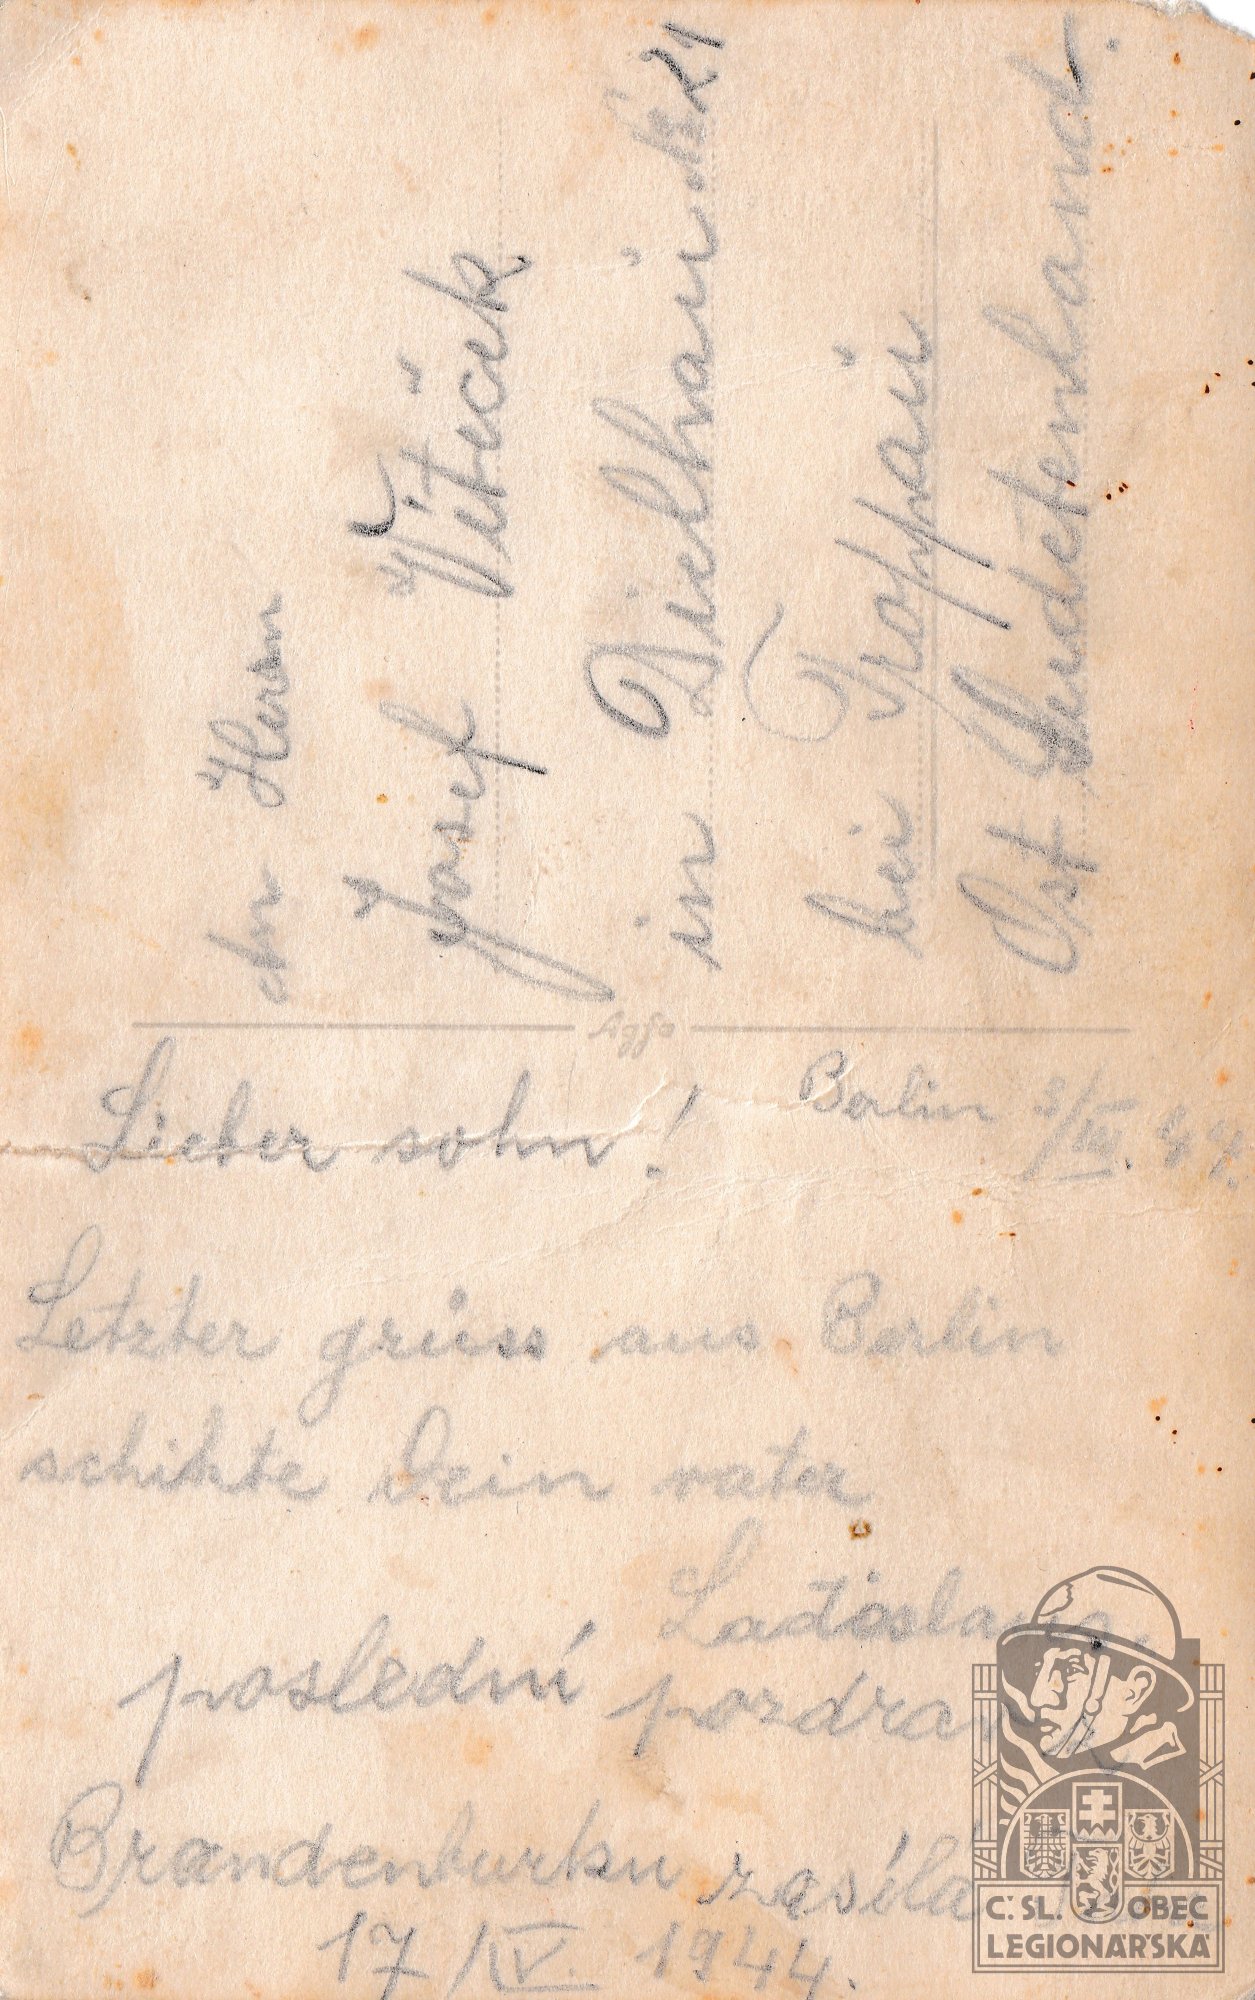 An Herrn
Josef Vítečék
in Dielhau
bei Troppau
Ost Sudetenland.
Agfa
Lieber sohn! Berlin 3/III. 44.
Letzter grüss aus Berlin
schikte Dein vater
Ladislaus.
poslední pozdrav
Brandenburku zasíla
17/IV. 1944.
Č. SL. OBEC
LEGIONÁŘSKÁ